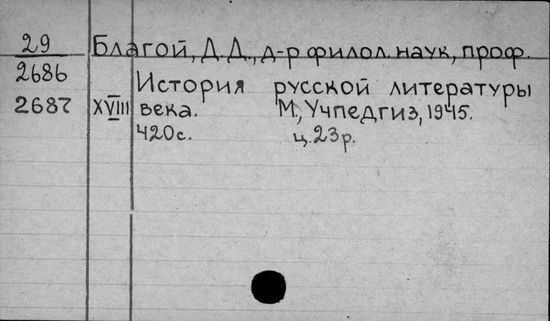 29 Благой, Д.Д., д-р филол. наук, проф.
2686 История русской литературы
2687 XVIII века. М., Учпедгиз, 1945.
420с. ц.23р.